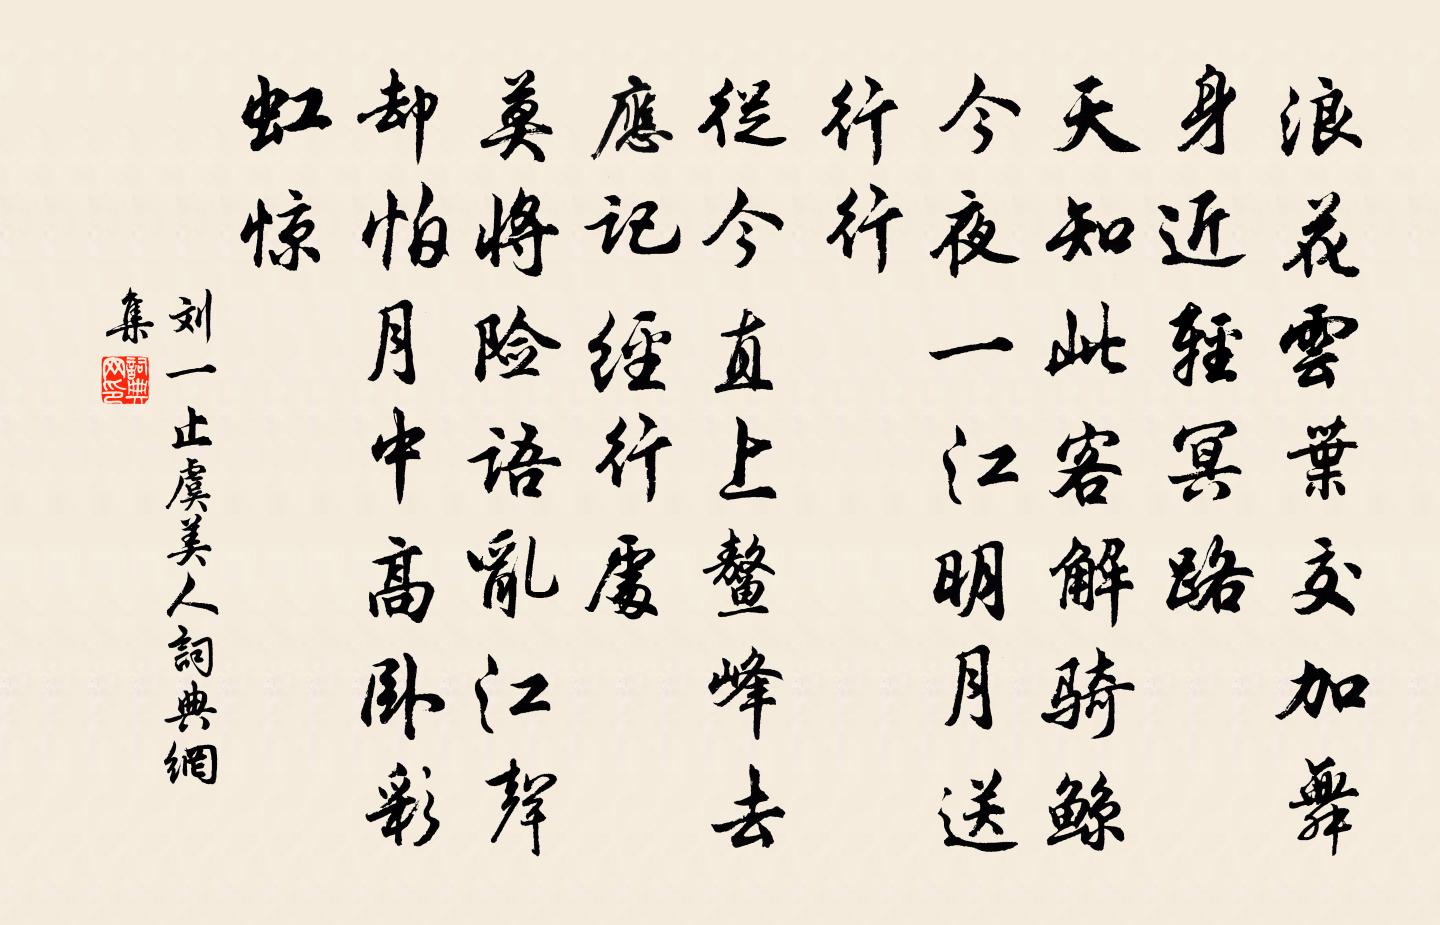 浪花雲葉交加舞
身近輕冥路
天知此客解騎鯨
今夜一江明月送
行行
從今直上鰲峰去
應記經行處
莫將险語亂江聲
却怕月中高卧彩
虹惊
刘一止虞美人詞典網
集
詞典
网印